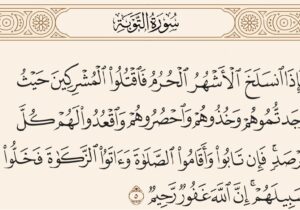 سُورَةُ التَّوْبَةِ
إِذَا ٱنسَلَخَ ٱلْأَشْهُرُ ٱلْحُرُمُ فَٱقْتُلُوا۟ ٱلْمُشْرِكِينَ حَيْثُ
جَدتُّمُوهُمْ وَخُذُوهُمْ وَٱحْصُرُوهُمْ وَٱقْعُدُوا۟ لَهُمْ كُلَّ
رْصَدٍ ۚ فَإِن تَابُوا۟ وَأَقَامُوا۟ ٱلصَّلَوٰةَ وَءَاتَوُا۟ ٱلزَّكَوٰةَ فَخَلُّوا۟
بِيلَهُمْ ۚ إِنَّ ٱللَّهَ غَفُورٌ رَّحِيمٌ ٥